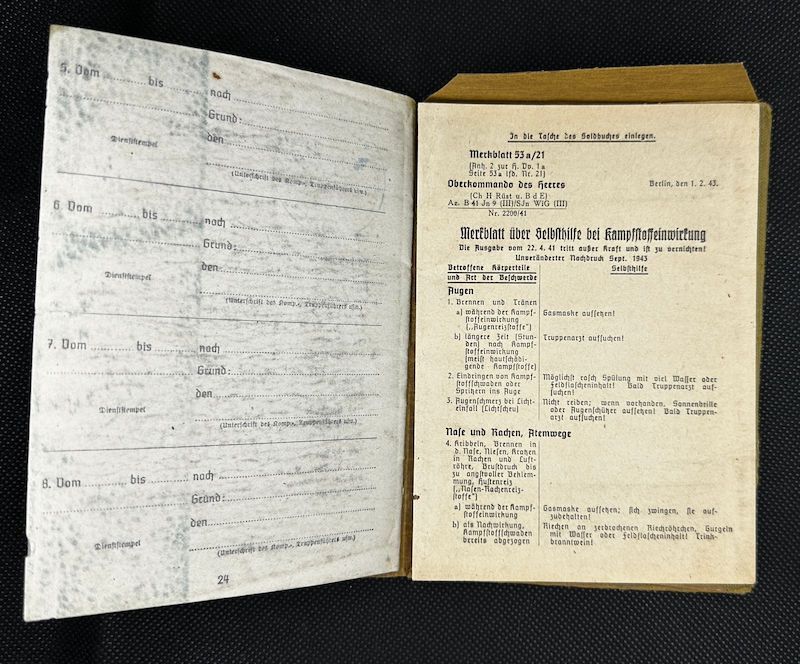 5. Vom ............ bis ............ nach ............
Grund: ............
den ............
Dienststempel
(Unterschrift des Komp.-, Truppenführers usw.)
6. Vom ............ bis ............ nach ............
Grund: ............
den ............
Dienststempel
(Unterschrift des Komp.-, Truppenführers usw.)
7. Vom ............ bis ............ nach ............
Grund: ............
den ............
Dienststempel
(Unterschrift des Komp.-, Truppenführers usw.)
8. Vom ............ bis ............ nach ............
Grund: ............
den ............
Dienststempel
(Unterschrift des Komp.-, Truppenführers usw.)
24
In die Tasche des Soldbuches einlegen.
Merkblatt 53 a/21
(Anh. 2 zur H. Dv. 1 a
Seite 53 a lfd. Nr. 21)
Oberkommando des Heeres
Berlin, den 1. 2. 43.
(Ch H Rüst u. B d E)
Az. B 41 Jn 9 (III)/SJn WiG (III)
Nr. 2200/41
Merkblatt über Selbsthilfe bei Kampfstoffeinwirkung
Die Ausgabe vom 22. 4. 41 tritt außer Kraft und ist zu vernichten!
Unveränderter Nachdruck Sept. 1943
Betroffene Körperteile
und Art der Beschwerde
Selbsthilfe
Augen
1. Brennen und Tränen
a) während der Kampf-
stoffeinwirkung
(„Augenreizstoffe")
Gasmaske aufsetzen!
b) längere Zeit (Stun-
den) nach Kampf-
stoffeinwirkung
(meist hautschädi-
gende Kampfstoffe)
Truppenarzt aufsuchen!
2. Eindringen von Kampf-
stoffschwaden oder
Spritzern ins Auge
Möglichst rasch Spülung mit viel Wasser oder
Feldflascheninhalt! Bald Truppenarzt auf-
suchen!
3. Augenschmerz bei Licht-
einfall (Lichtscheu)
Nicht reiben; wenn vorhanden, Sonnenbrille
oder Augenschützer aufsetzen! Bald Truppen-
arzt aufsuchen!
Nase und Rachen, Atemwege
4. Kribbeln, Brennen in
d. Nase, Niesen, Kratzen
in Rachen und Luft-
röhre, Brustdruck bis
zu angstvoller Beklem-
mung, Hustenreiz
(„Nasen-Rachenreiz-
stoffe")
a) während der Kampf-
stoffeinwirkung
Gasmaske aufsetzen; sich zwingen, sie auf-
zubehalten!
b) als Nachwirkung,
Kampfstoffschwaden
bereits abgezogen
Riechen an zerbrochenen Riechröhrchen, Gurgeln
mit Wasser oder Feldflascheninhalt! Trink-
branntwein!